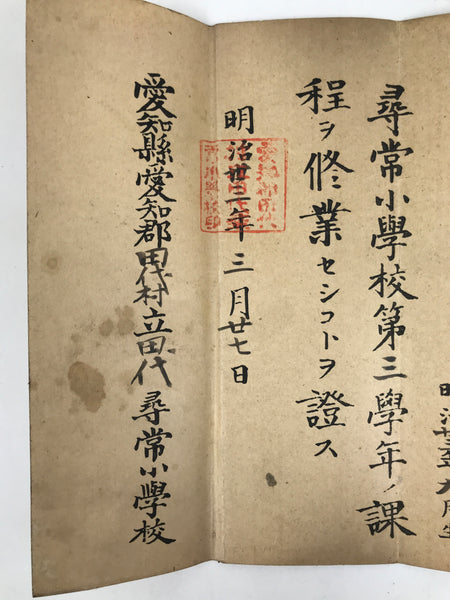 尋常小學校第三學年ノ課
程ヲ修業セシコトヲ證ス
明治丗三年三月廿七日
愛知縣愛知郡田代村立田代尋常小學校